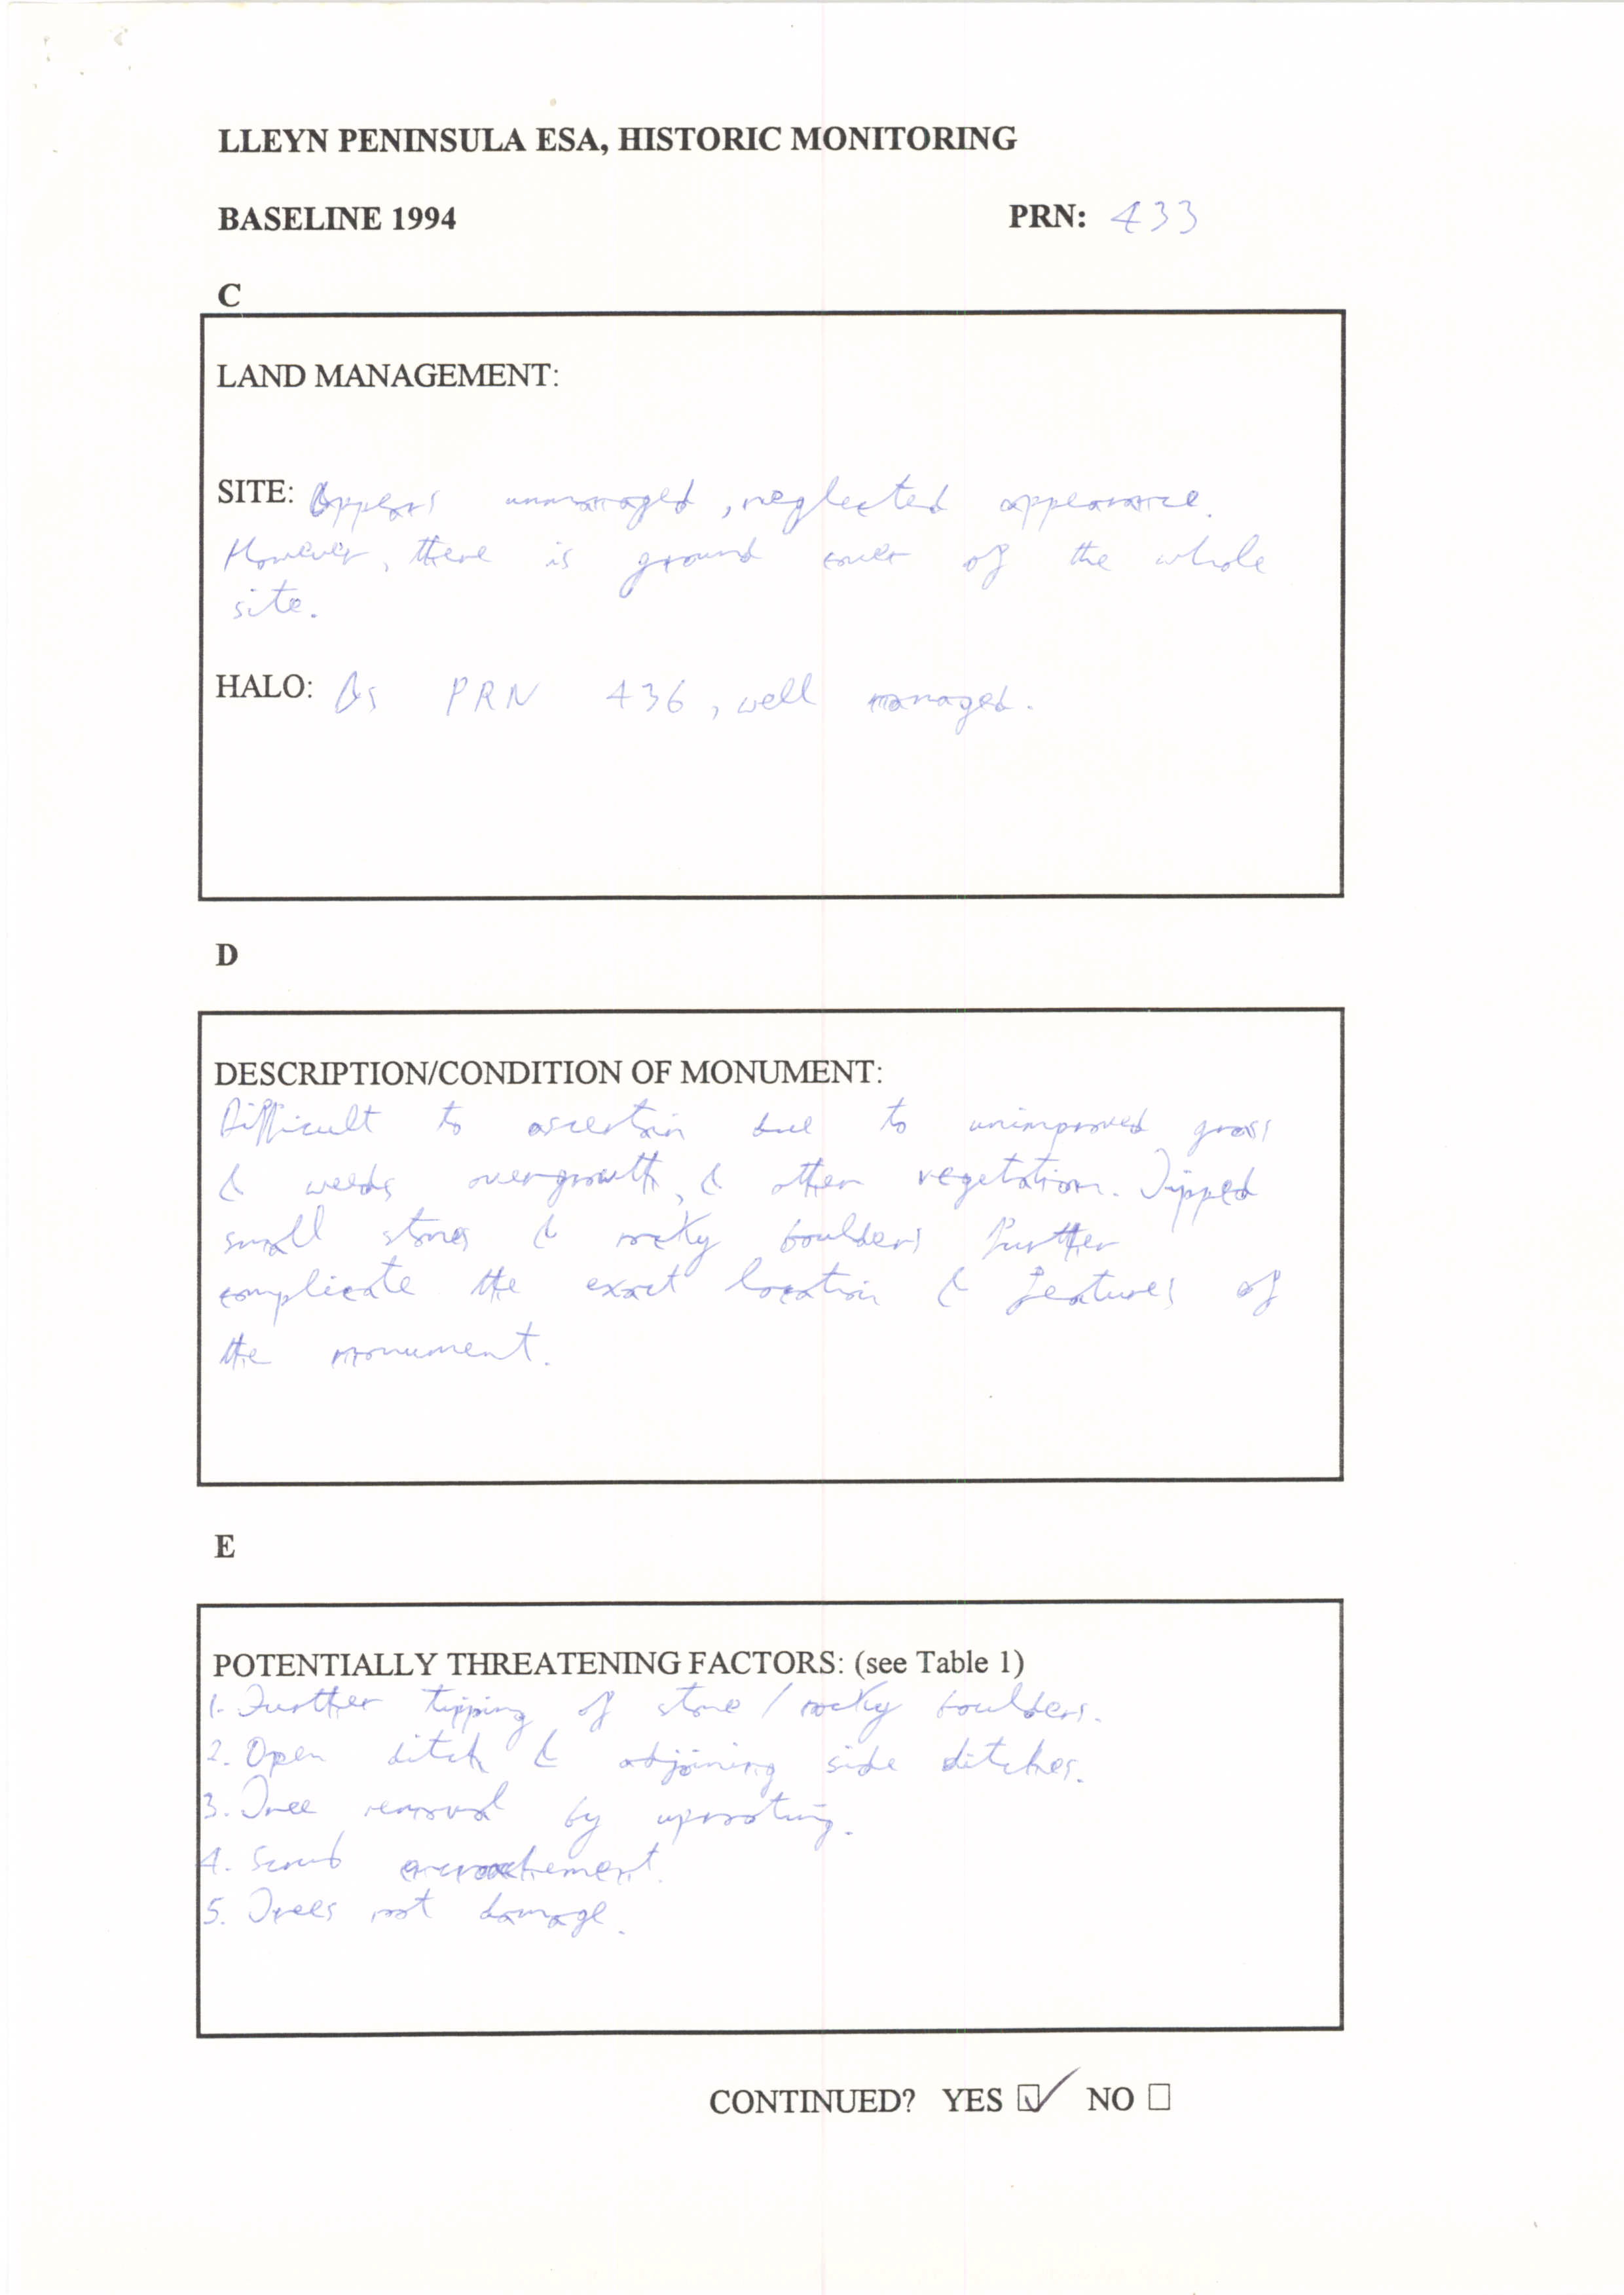 LLEYN PENINSULA ESA, HISTORIC MONITORING
BASELINE 1994 PRN: 433
C
LAND MANAGEMENT:
SITE: Appears unmanaged, neglected appearance.
However, there is ground cover of the whole
site.
HALO: As PRN 436, well managed.
D
DESCRIPTION/CONDITION OF MONUMENT:
Difficult to ascertain due to unimproved grass
& weeds overgrowth, & other vegetation. Tipped
small stones & rocky boulders further
complicate the exact location & features of
the monument.
E
POTENTIALLY THREATENING FACTORS: (see Table 1)
1. Further tipping of stone / rocky boulders.
2. Open ditch & adjoining side ditches.
3. Tree removal by uprooting.
4. Scrub encroachement.
5. Trees root damage.
CONTINUED? YES ☑ NO ☐